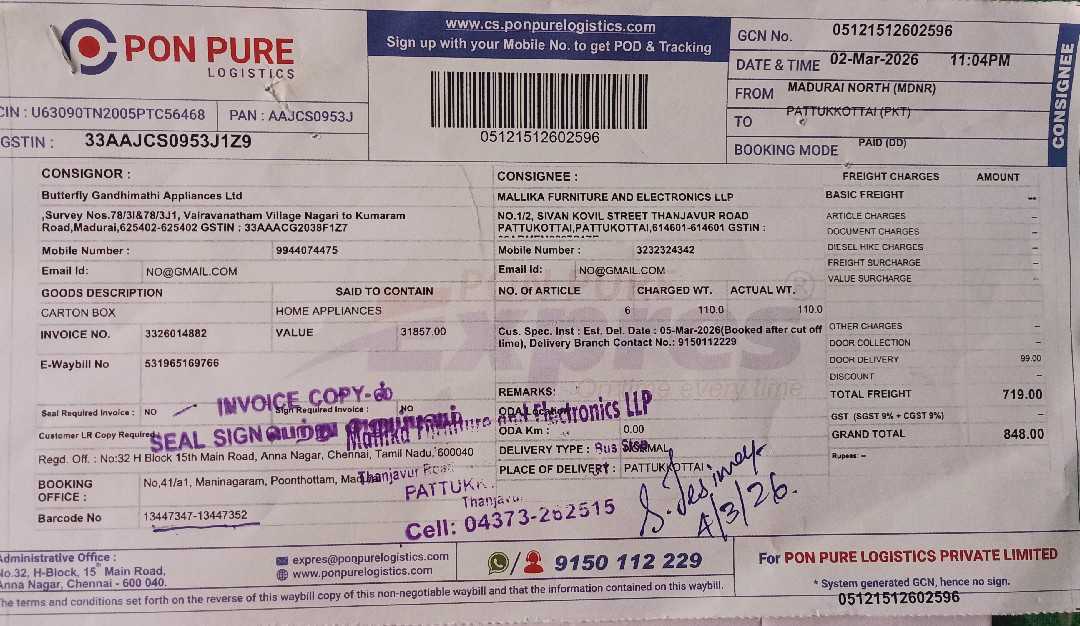 PON PURE
LOGISTICS
www.cs.ponpurelogistics.com
Sign up with your Mobile No. to get POD & Tracking
05121512602596
GCN No. 05121512602596
DATE & TIME 02-Mar-2026 11:04PM
FROM MADURAI NORTH (MDNR)
TO PATTUKKOTTAI (PKT)
BOOKING MODE PAID (DD)
CONSIGNEE
CIN : U63090TN2005PTC56468 PAN : AAJCS0953J
GSTIN : 33AAJCS0953J1Z9
CONSIGNOR :
Butterfly Gandhimathi Appliances Ltd
,Survey Nos.78/3I&78/3J1, Vairavanatham Village Nagari to Kumaram
Road,Madurai,625402-625402 GSTIN : 33AAACG2038F1Z7
Mobile Number : 9944074475
Email Id: NO@GMAIL.COM
GOODS DESCRIPTION SAID TO CONTAIN
CARTON BOX HOME APPLIANCES
INVOICE NO. 3326014882 VALUE 31857.00
E-Waybill No 531965169766
Seal Required Invoice : NO Sign Required Invoice : NO
Customer LR Copy Required:
Regd. Off. : No:32 H Block 15th Main Road, Anna Nagar, Chennai, Tamil Nadu, 600040
BOOKING OFFICE : No,41/a1, Maninagaram, Poonthottam,
Barcode No 13447347-13447352
CONSIGNEE :
MALLIKA FURNITURE AND ELECTRONICS LLP
NO.1/2, SIVAN KOVIL STREET THANJAVUR ROAD
PATTUKOTTAI,PATTUKOTTAI,614601-614601 GSTIN :
Mobile Number : 3232324342
Email Id: NO@GMAIL.COM
NO. Of ARTICLE CHARGED WT. ACTUAL WT.
6 110.0 110.0
Cus. Spec. Inst : Est. Del. Date : 05-Mar-2026(Booked after cut off
time), Delivery Branch Contact No.: 9150112229
REMARKS:
ODA Location
ODA Km : 0.00
DELIVERY TYPE : NORMAL
PLACE OF DELIVERY : PATTUKKOTTAI
FREIGHT CHARGES AMOUNT
BASIC FREIGHT --
ARTICLE CHARGES –
DOCUMENT CHARGES –
DIESEL HIKE CHARGES –
FREIGHT SURCHARGE –
VALUE SURCHARGE –
OTHER CHARGES –
DOOR COLLECTION –
DOOR DELIVERY 99.00
DISCOUNT –
TOTAL FREIGHT 719.00
GST (SGST 9% + CGST 9%)
GRAND TOTAL 848.00
Rupees: --
Expres
On time every time
INVOICE COPY-ல்
SEAL SIGN
Mallika Furniture and Electronics LLP
Bus Stop
Thanjavur Road
PATTUKK
Thanjavur
Cell: 04373-262515
4/3/26.
Administrative Office :
No.32, H-Block, 15th Main Road,
Anna Nagar, Chennai - 600 040.
expres@ponpurelogistics.com
www.ponpurelogistics.com
9150 112 229
For PON PURE LOGISTICS PRIVATE LIMITED
* System generated GCN, hence no sign.
05121512602596
The terms and conditions set forth on the reverse of this waybill copy of this non-negotiable waybill and that the information contained on this waybill.